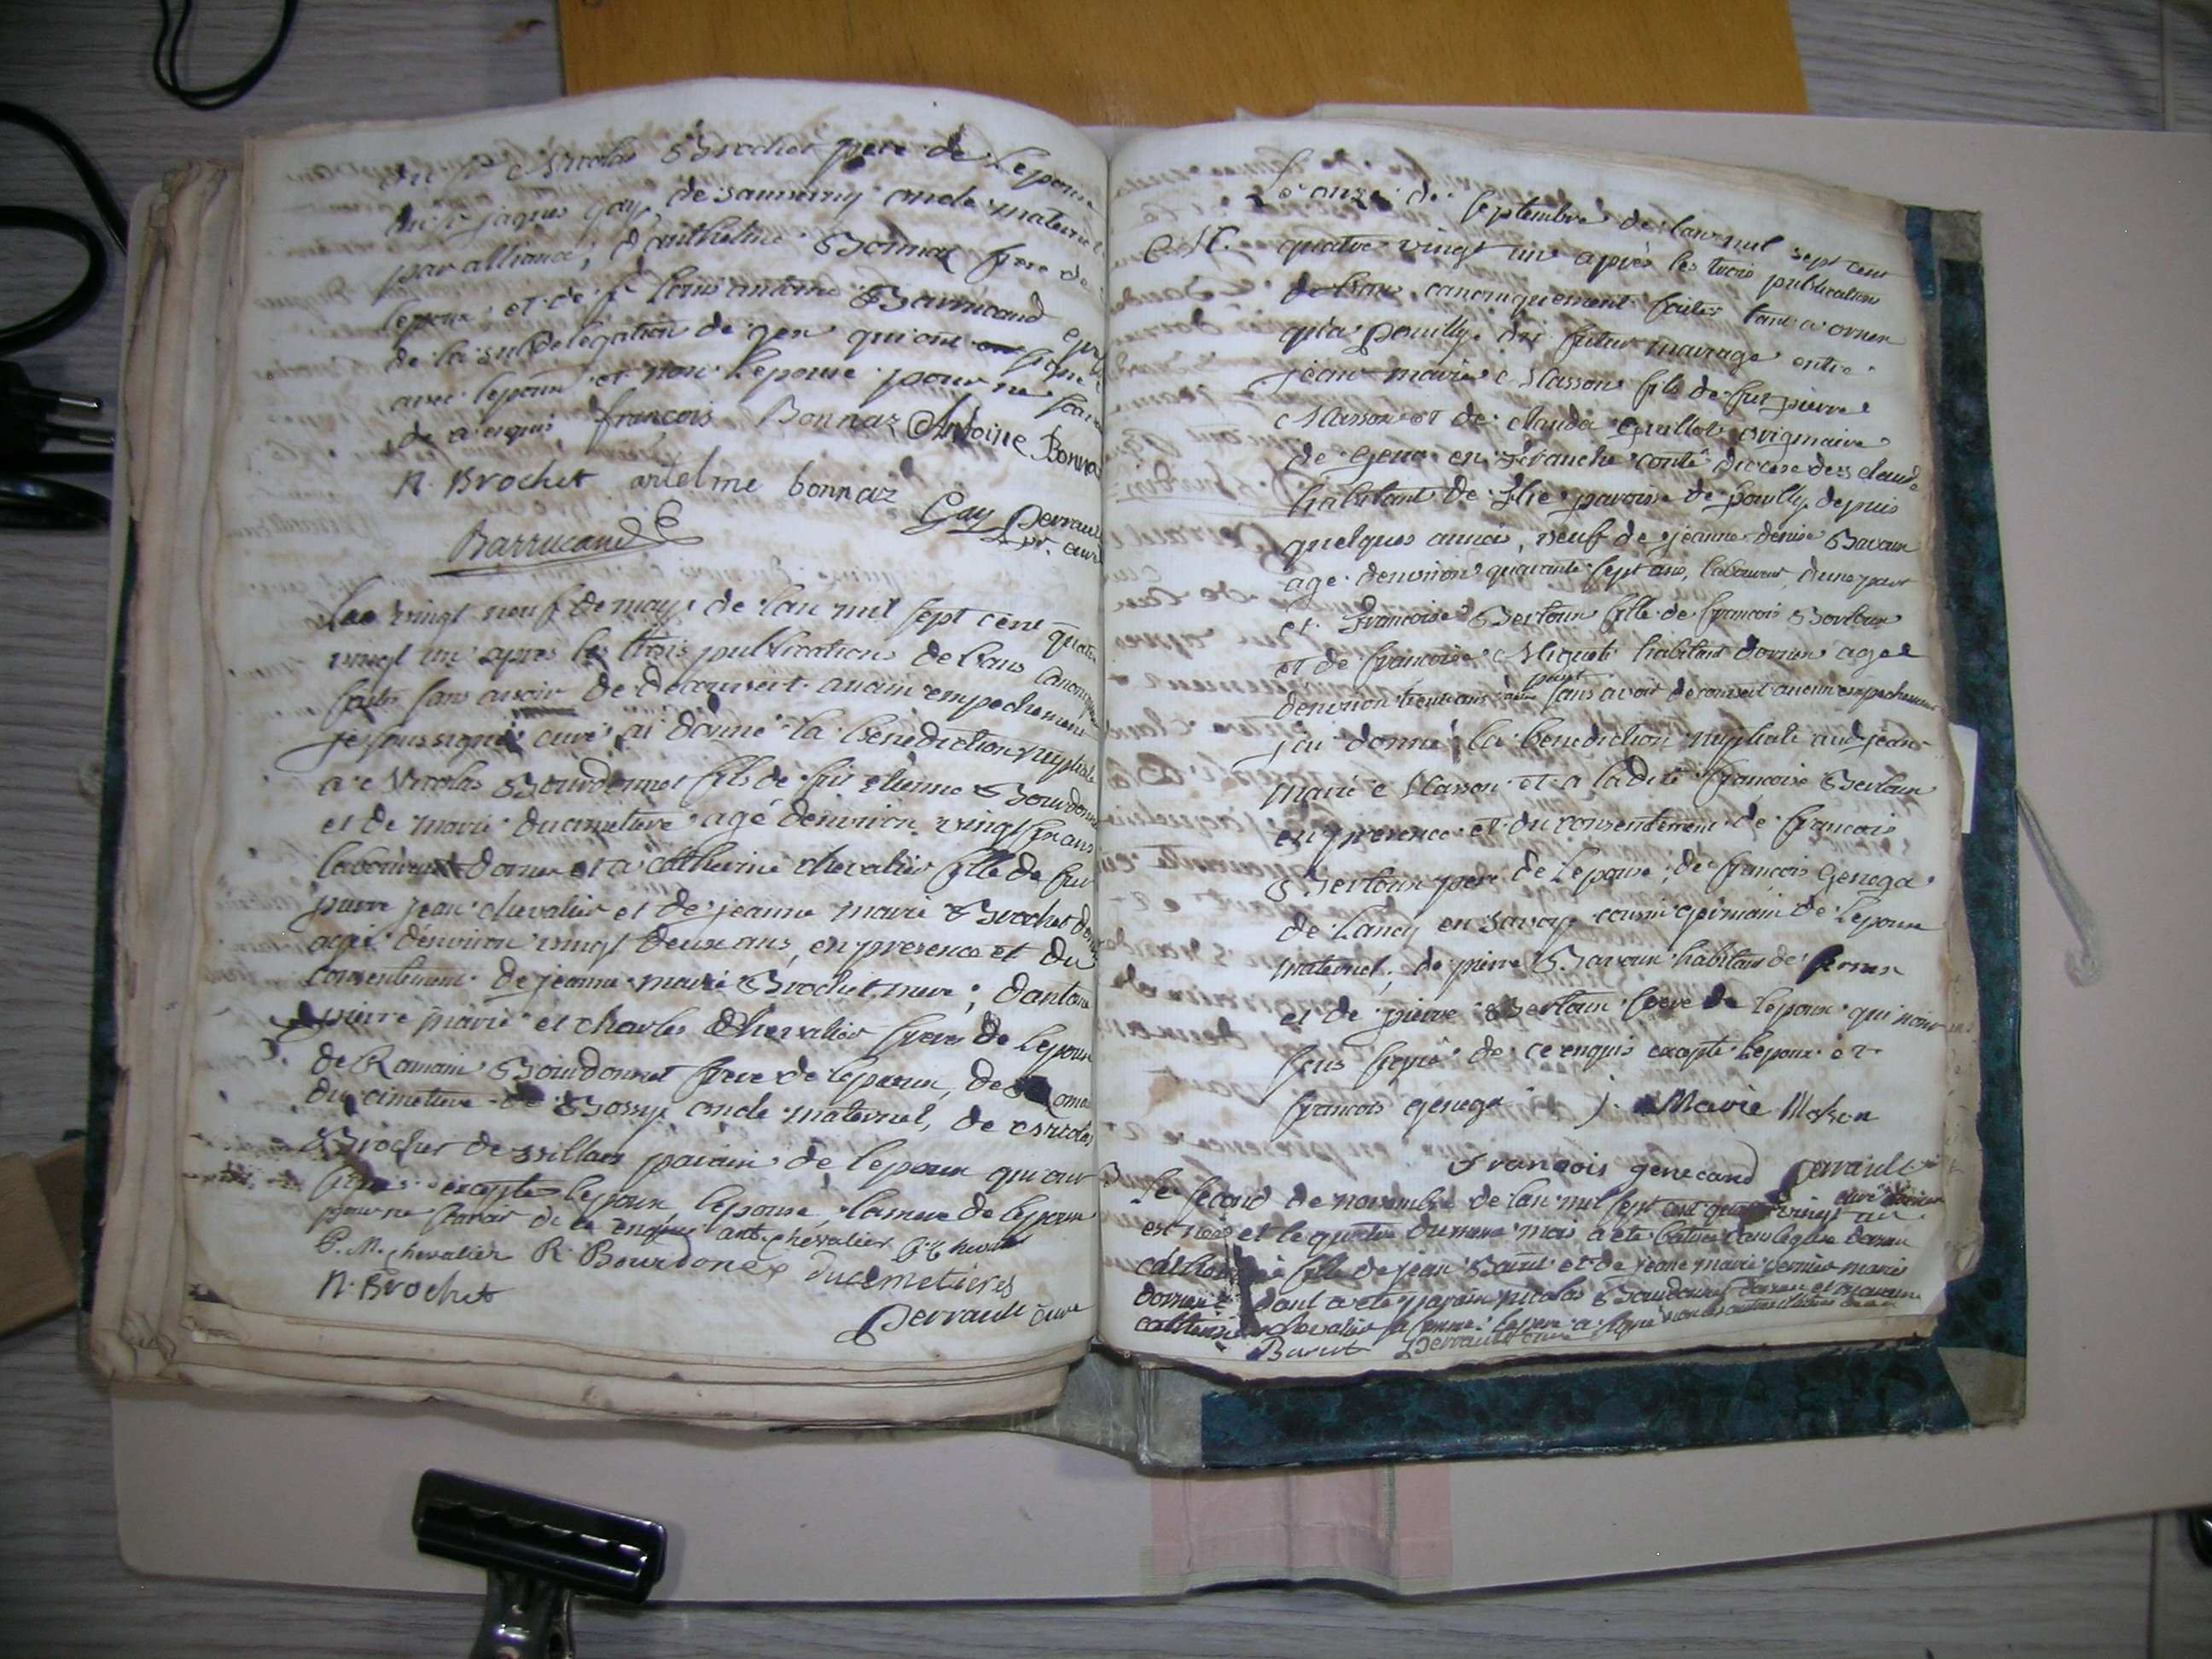 du sr Nicolas Brochet pere de Lepouse
du sr jaques Gay de sauverny oncle maternel
par alliance, d'anthelme Bonnaz frere de
lepoux, et de sr Louis antoine Barrucand
de la subdelegation de gex qui ont signé
avec lepoux et non Lepouse pour ne scavoir
de ce enquis françois Bonnaz Antoine Bonna
N. Brochet antelme bonnaz
Barrucand Gay Perrault
curé
Le vingt neuf de may de lan mil sept cent quatre
vingt un apres les trois publications de bans canoniquement
faites sans avoir de decouvert aucun empechement
je soussigné curé ai donné la benediction nuptiale
a Nicolas Bourdonnet fils de feu etienne Bourdonnet
et de marie ducimetiere agé denviron vingt ans
laboureur dornex et a catherine chevalier fille de feu
pierre jean chevalier et de jeanne marie Brochet
agée denviron vingt deux ans, en presence et du
consentement de jeanne marie Brochet mere; dantoine
pierre marie et charles Chevalier freres de Lepouse
de Romain Bourdonnet frere de lepoux, de
ducimetiere de Bossy oncle maternel, de Nicolas
Brochet de villars parain de lepoux qui ont
signés excepté lepoux, lepouse, la mere de lepouse
pour ne scavoir de ce enquis ant. chevalier
P. M. chevalier R. Bourdonex ducemetieres
N. Brochet
Perrault curé
Le onze de septembre de lan mil sept cent
quatre vingt un après les trois publication
de bans canoniquement faites tant a ornex
qu'a pouilly du futur mariage entre
jean marie Masson fils de feu pierre
Masson et de clauda Guillot originaire
de en franche conté diocese de s claude
habitant de paroisse de pouilly depuis
quelques années, veuf de jeanne denise Bavoux
agé denviron quarante sept ans, laboureur, dune part
et françoise Bertoun fille de françois Bertoun
et de françoise Miguet habitant dornex agée
denviron trente ans dautre part sans avoir decouvert aucun empechement
jai donné la benediction nuptiale aud jean
marie Masson et a ladite françoise Bertoun
en presence et du consentement de françois
Bertoun pere de Lepouse, de françois Genega
de Lancy en savoye cousin germain de Lepouse
maternel, de pierre Bavoux habitant de
et de pierre Bertoun frere de lepouse qui nont
sus signé de ce enquis excepté Lepoux et
françois genega j. Marie Mason
François genecand Perrault
curé
Le second de novembre de lan mil sept cent quatre vingt un
est née et le quatre du meme mois a eté batisée dans leglise dornex
catherine fille de jean Burut et de jeane marie vernier mariés
dornex dont a eté parain nicolas Bourdonnet dornex et maraine
catherine chevalier sa femme. Le pere a signé
Burut Perrault curé